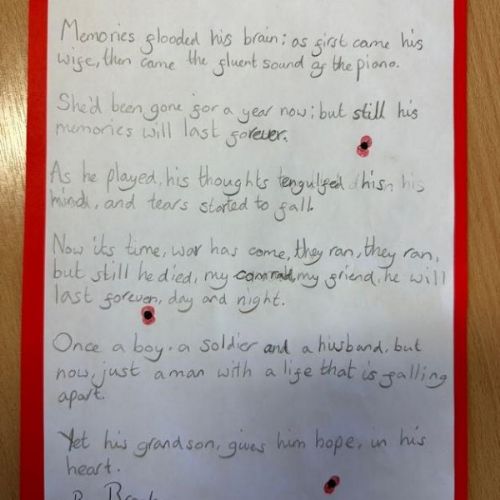 Memories flooded his brain; as first came his
wife, then came the fluent sound of the piano.
She'd been gone for a year now; but still his
memories will last forever.
As he played, his thoughts engulfed his
mind, and tears started to fall.
Now its time, war has come, they ran, they ran,
but still he died, my comrad, my friend, he will
last forever, day and night.
Once a boy. a soldier and a husband, but
now, just a man with a life that is falling
apart.
Yet his grandson, gives him hope, in his
heart.